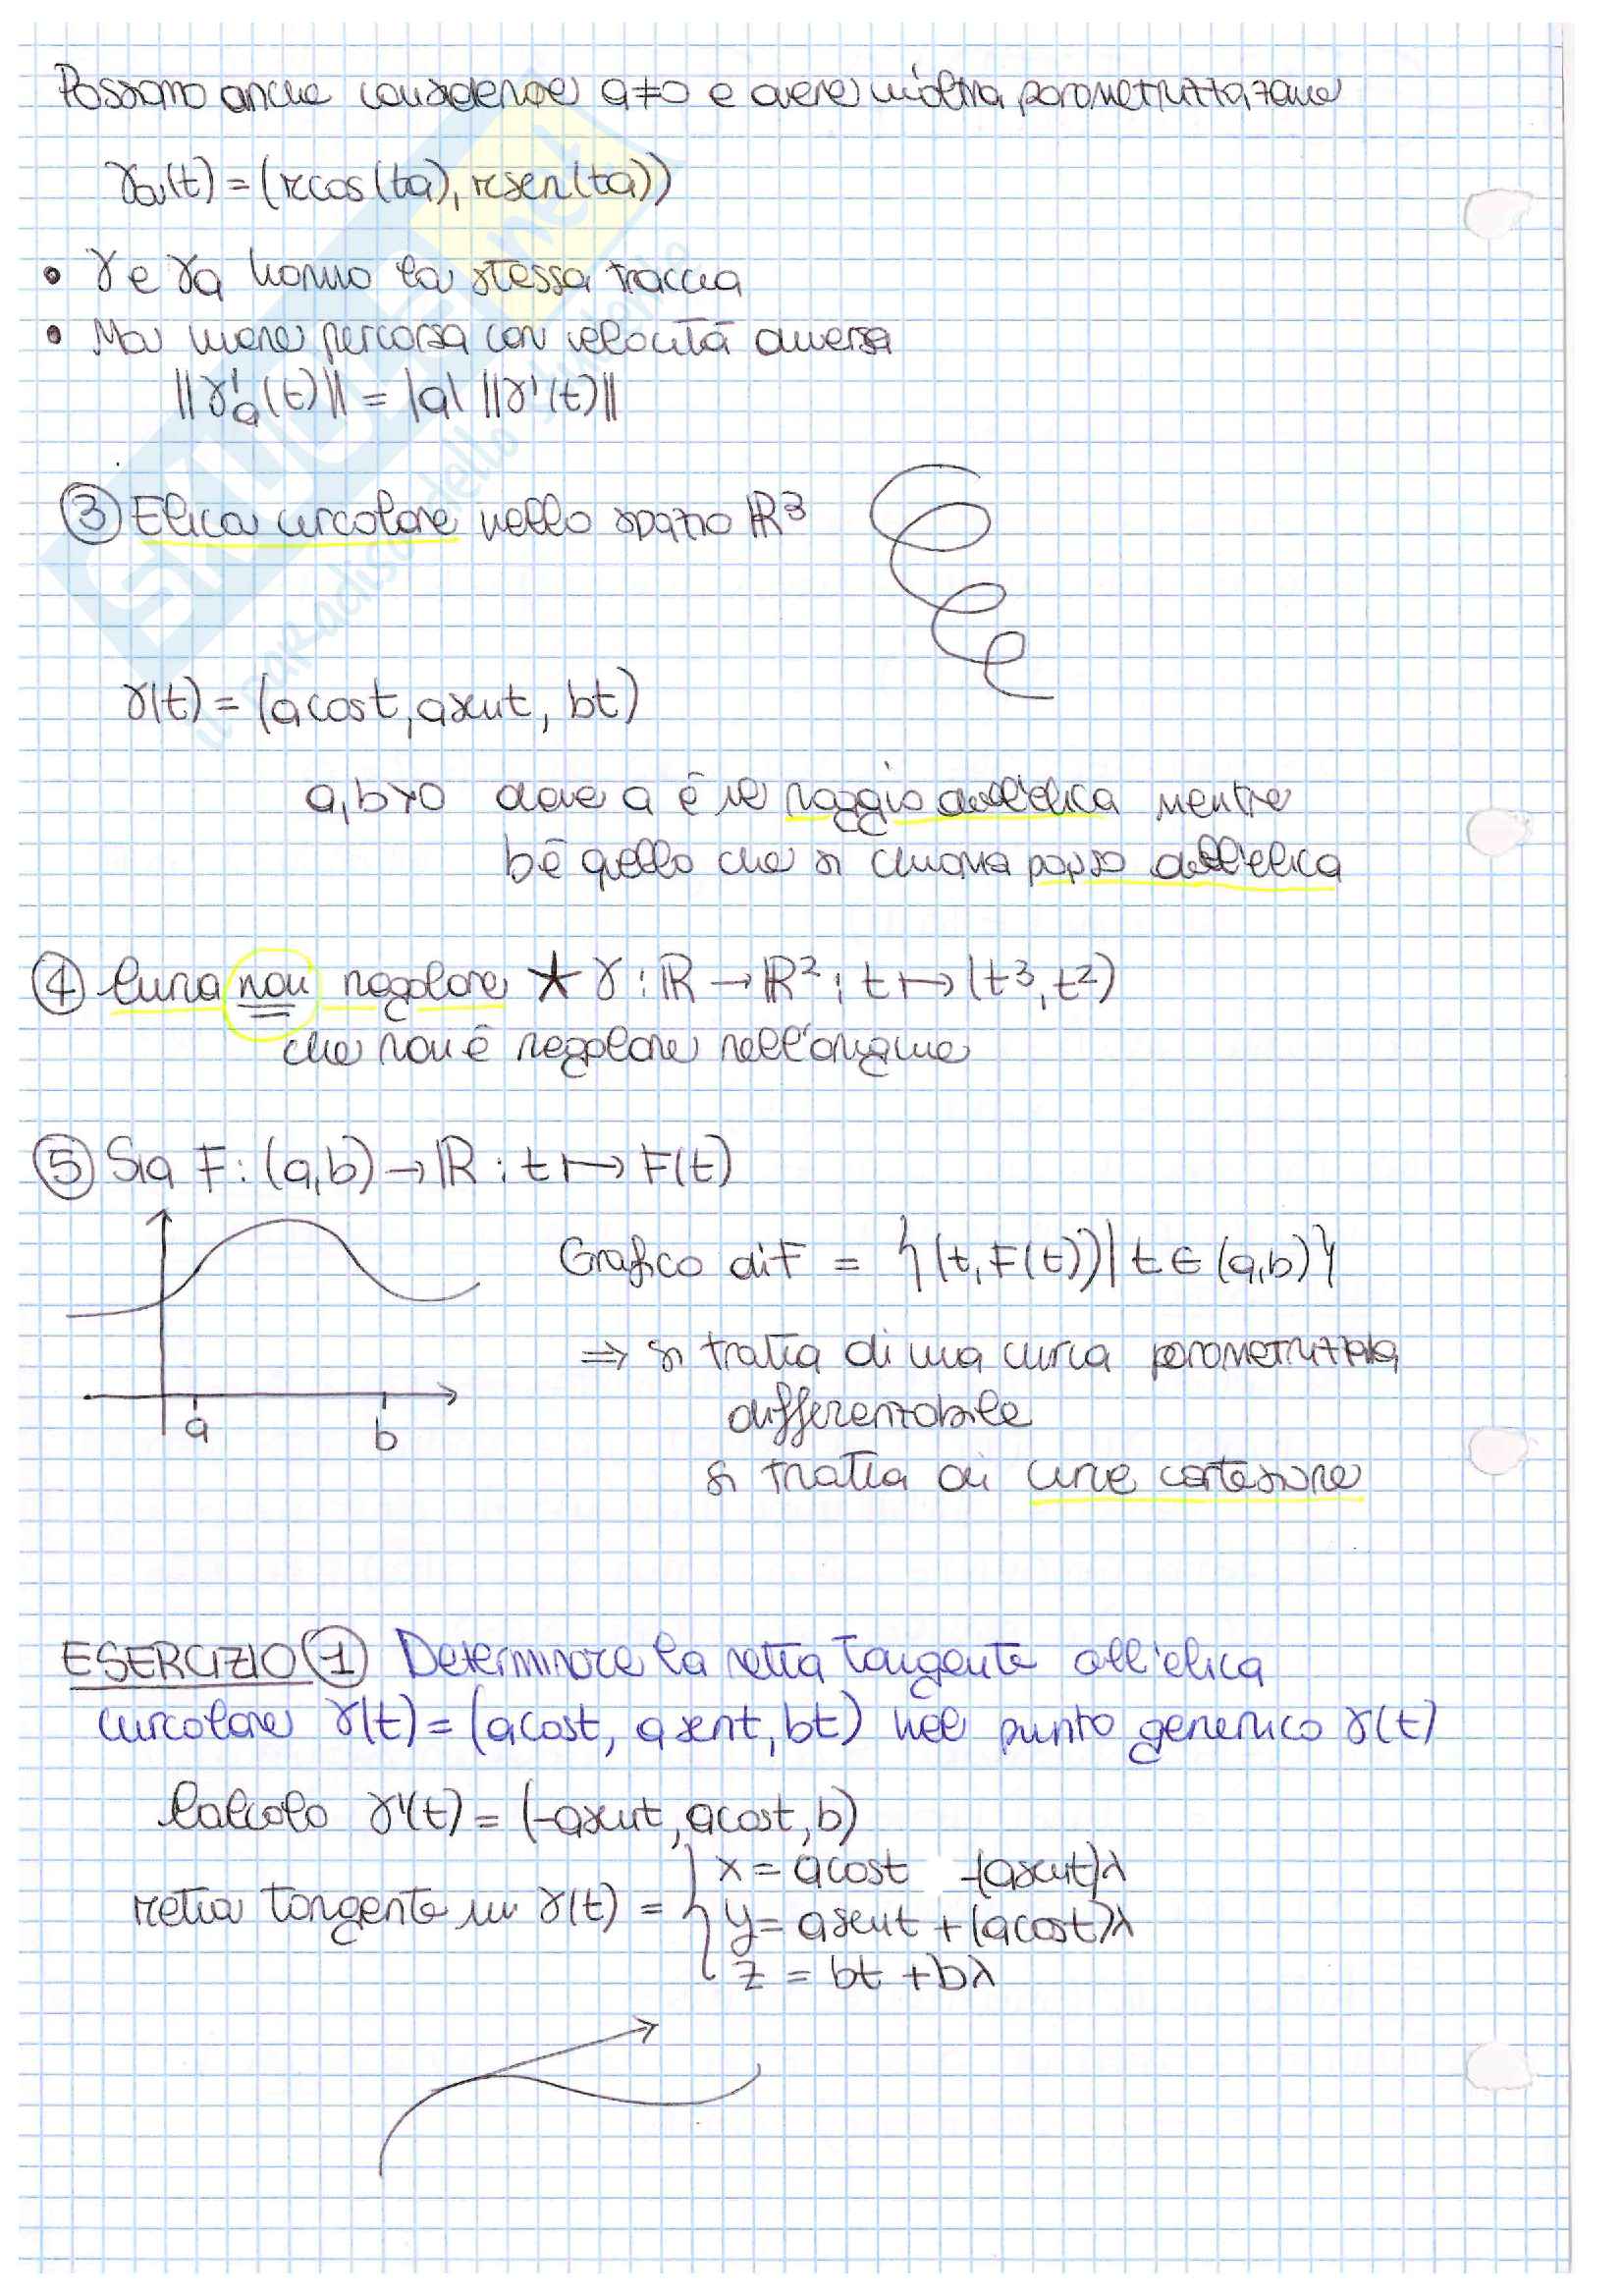 Possiamo anche considerare a≠0 e avere un'altra parametrizzazione
γa(t) = (rcos(ta), rsen(ta))
• γ e γa hanno la stessa traccia
• Ma viene percorsa con velocità diversa
||γ'a(t)|| = |a| ||γ'(t)||
③ Elica circolare nello spazio ℝ³
γ(t) = (acost, asent, bt)
a,b>0 dove a è il raggio dell'elica mentre
b è quello che si chiama passo dell'elica
④ Curva non regolare ★ γ: ℝ → ℝ² ; t ↦ (t³, t²)
che non è regolare nell'origine
⑤ Sia F: (a,b) → ℝ : t ↦ F(t)
Grafico di F = {(t, F(t)) | t ∈ (a,b)}
⇒ si tratta di una curva parametrizzata
differenziabile
a b
si tratta di curve cartesiane
ESERCIZIO ① Determinare la retta tangente all'elica
circolare γ(t) = (acost, asent, bt) nel punto generico γ(t)
Calcolo γ'(t) = (-asent, acost, b)
retta tangente in γ(t) = { x = acost -(asent)λ
y = asent + (acost)λ
z = bt + bλ